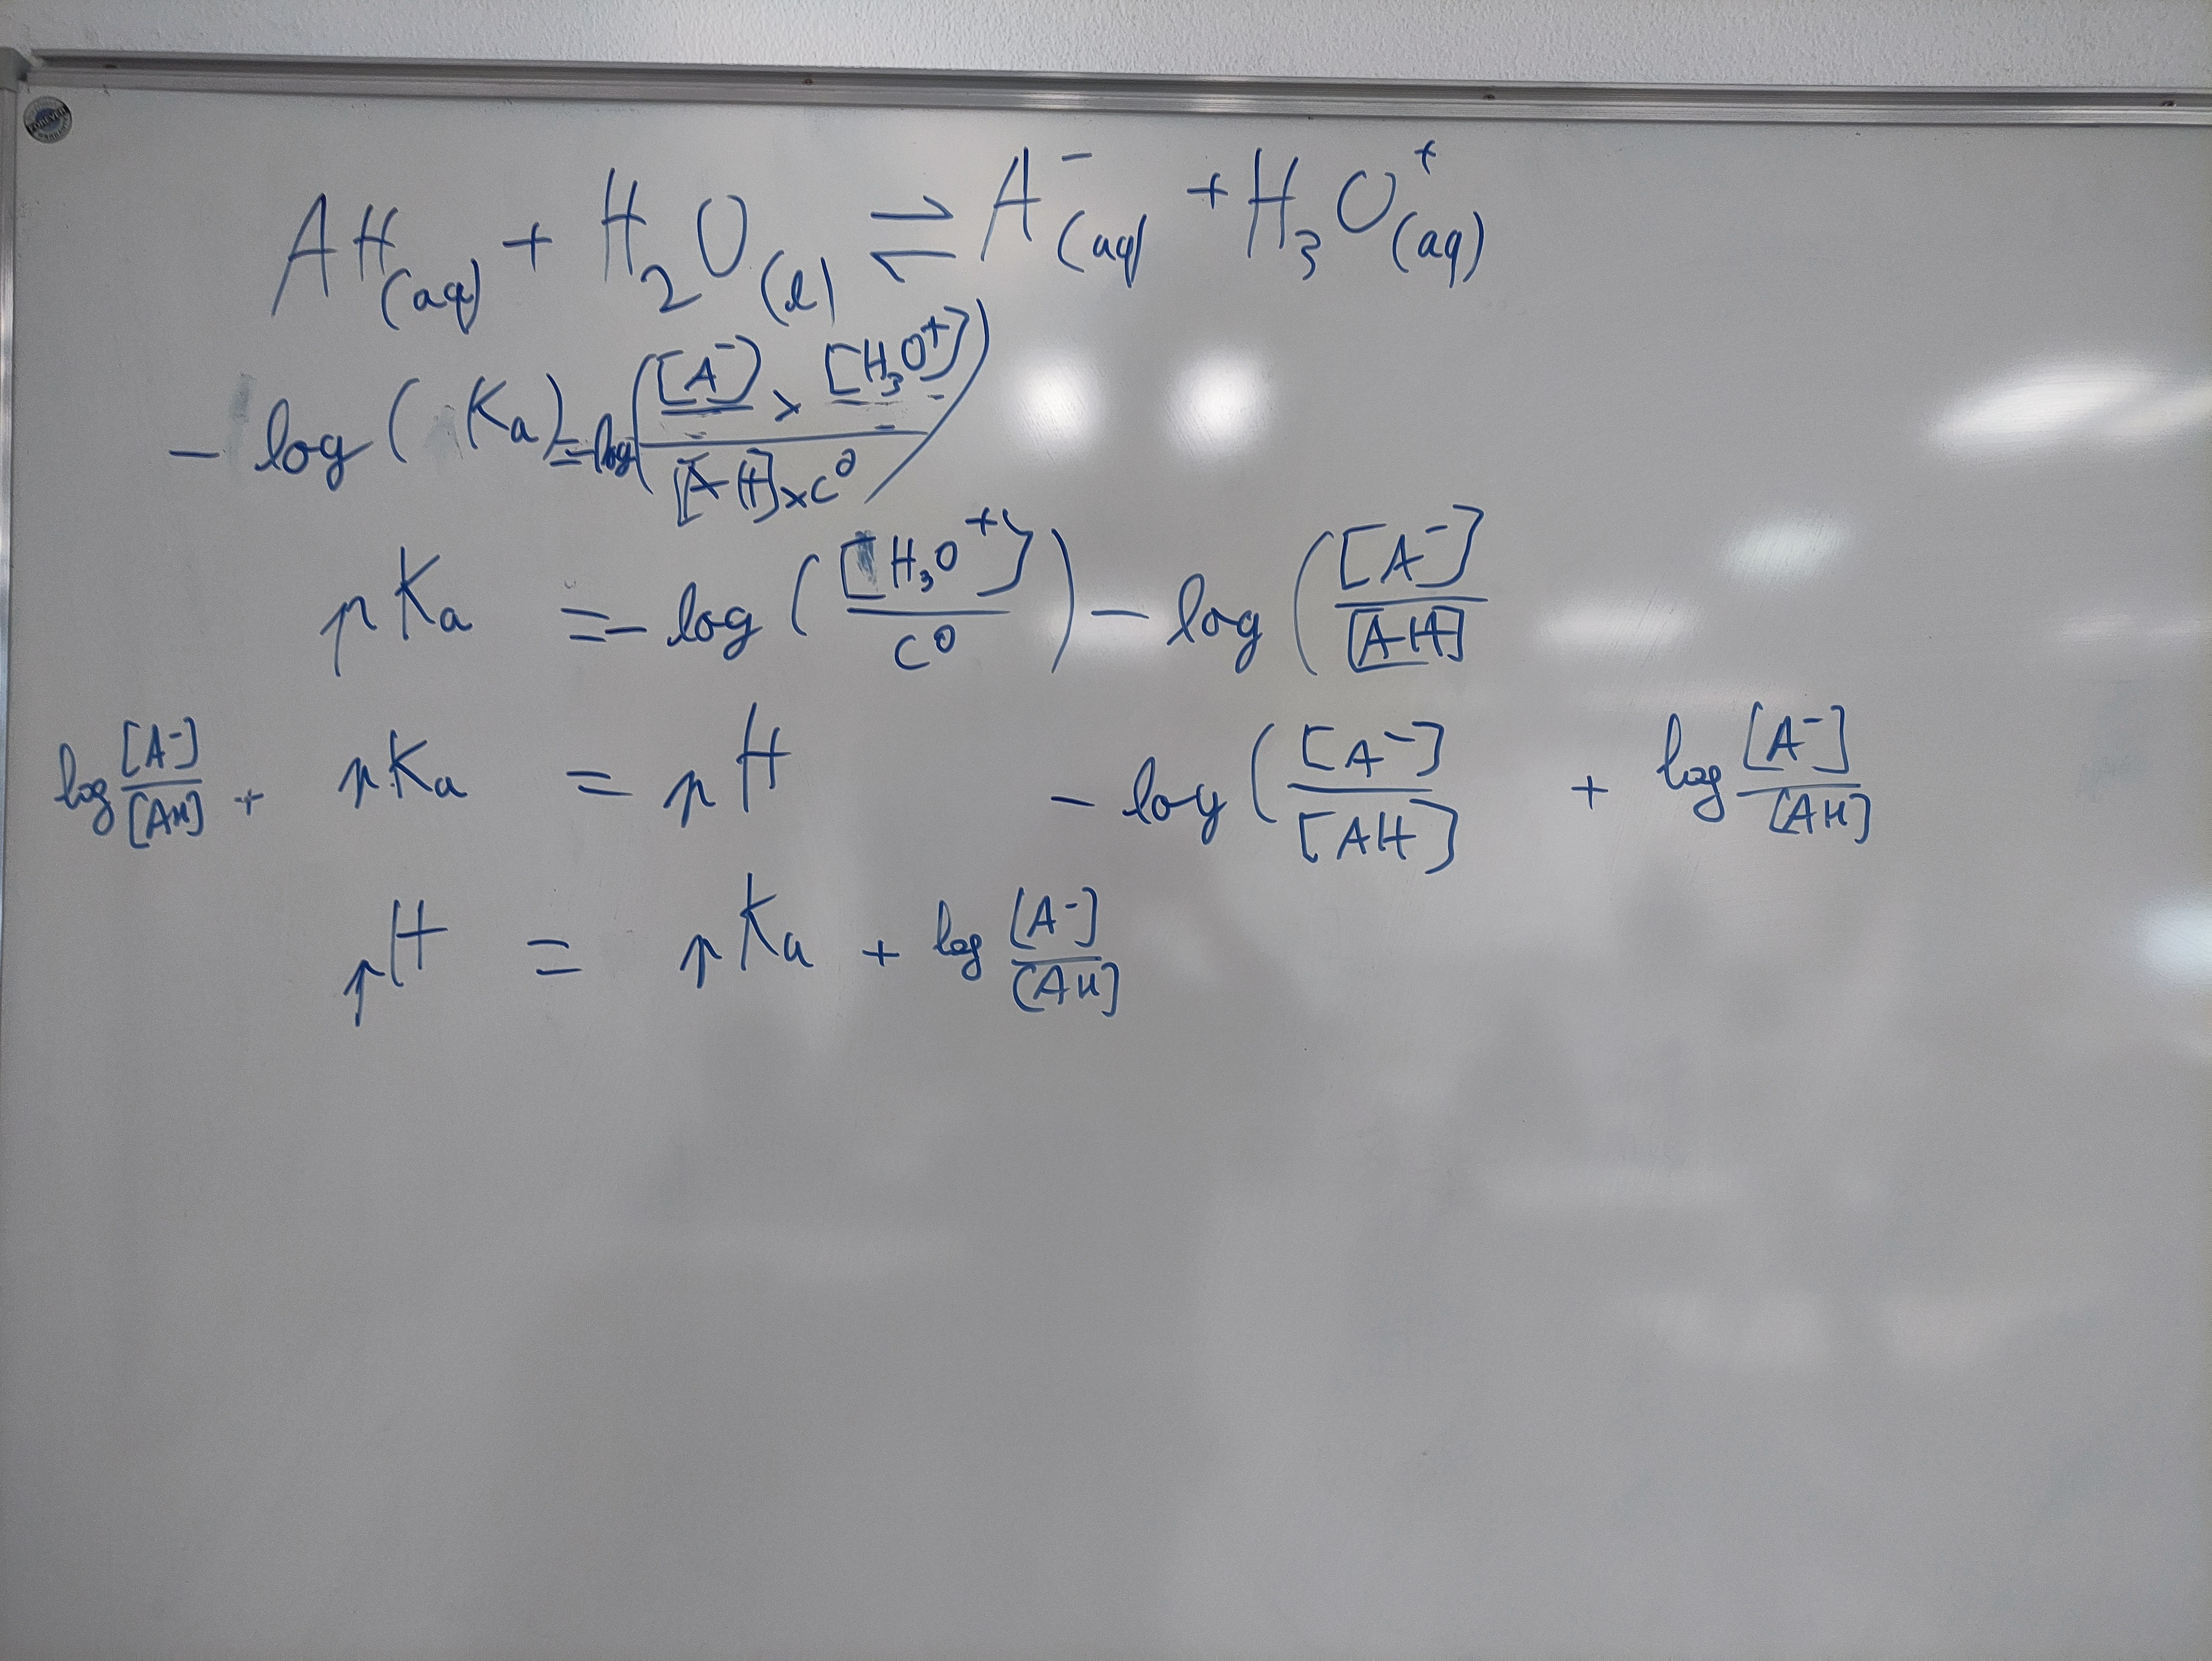 AH(aq) + H₂O(l) ⇌ A⁻(aq) + H₃O⁺(aq)
− log(Ka) = −log([A⁻] × [H₃O⁺] / [AH] × c⁰)
pKa = − log([H₃O⁺] / c⁰) − log([A⁻] / [AH]
log [A⁻] / [AH] + pKa = pH − log([A⁻] / [AH] + log [A⁻] / [AH]
pH = pKa + log [A⁻] / [AH]